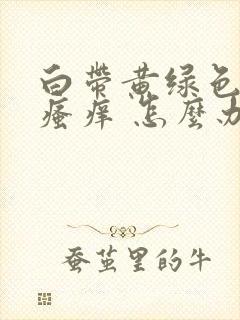 白带黄绿色
瘙痒怎麽办
蚕茧里的牛